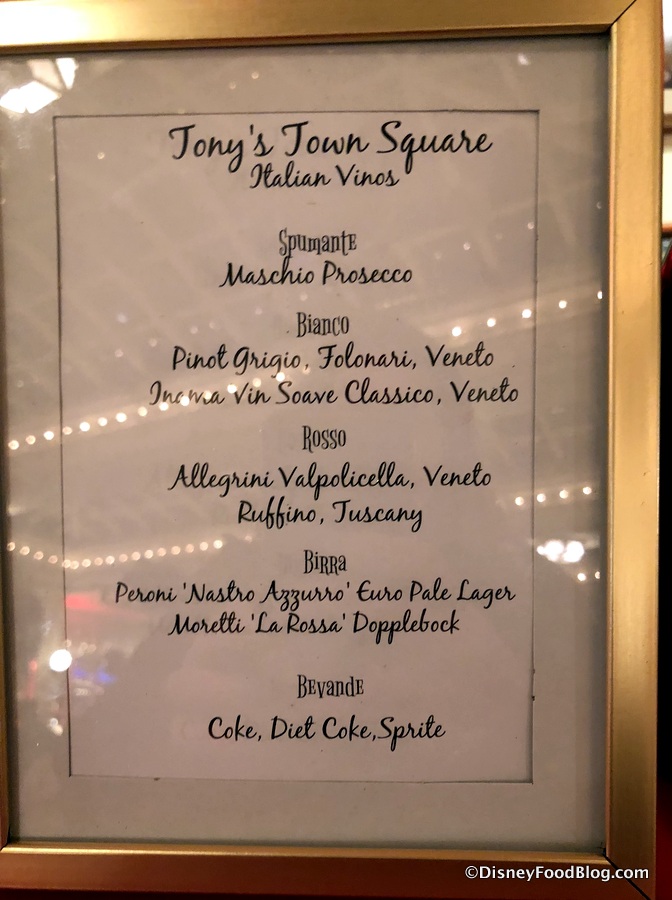 Tony's Town Square
Italian Vinos
Spumante
Maschio Prosecco
Bianco
Pinot Grigio, Folonari, Veneto
Inama Vin Soave Classico, Veneto
Rosso
Allegrini Valpolicella, Veneto
Ruffino, Tuscany
Birra
Peroni 'Nastro Azzurro' Euro Pale Lager
Moretti 'La Rossa' Dopplebock
Bevande
Coke, Diet Coke,Sprite
©DisneyFoodBlog.com